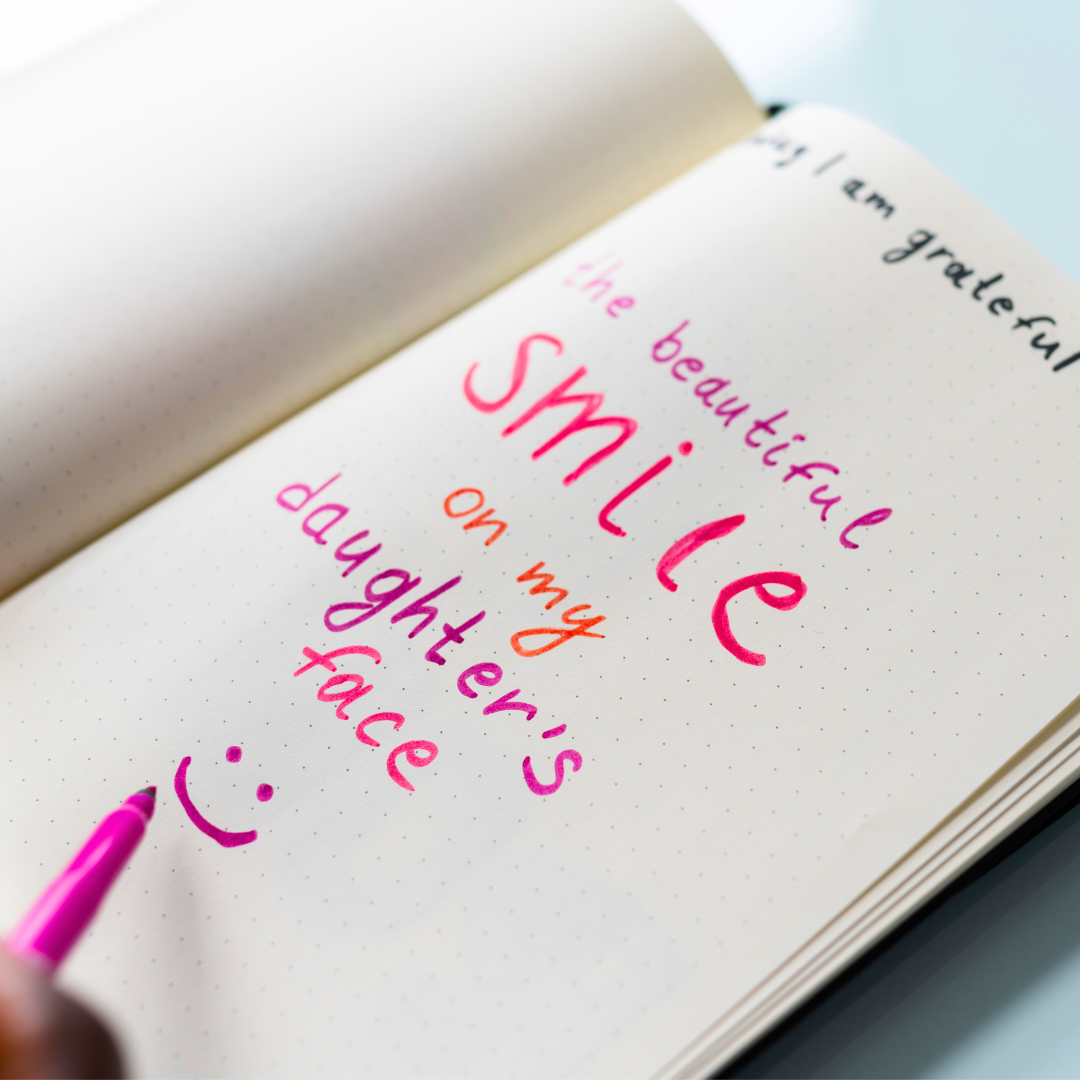 I am grateful
the beautiful
smile
on my
daughter's
face